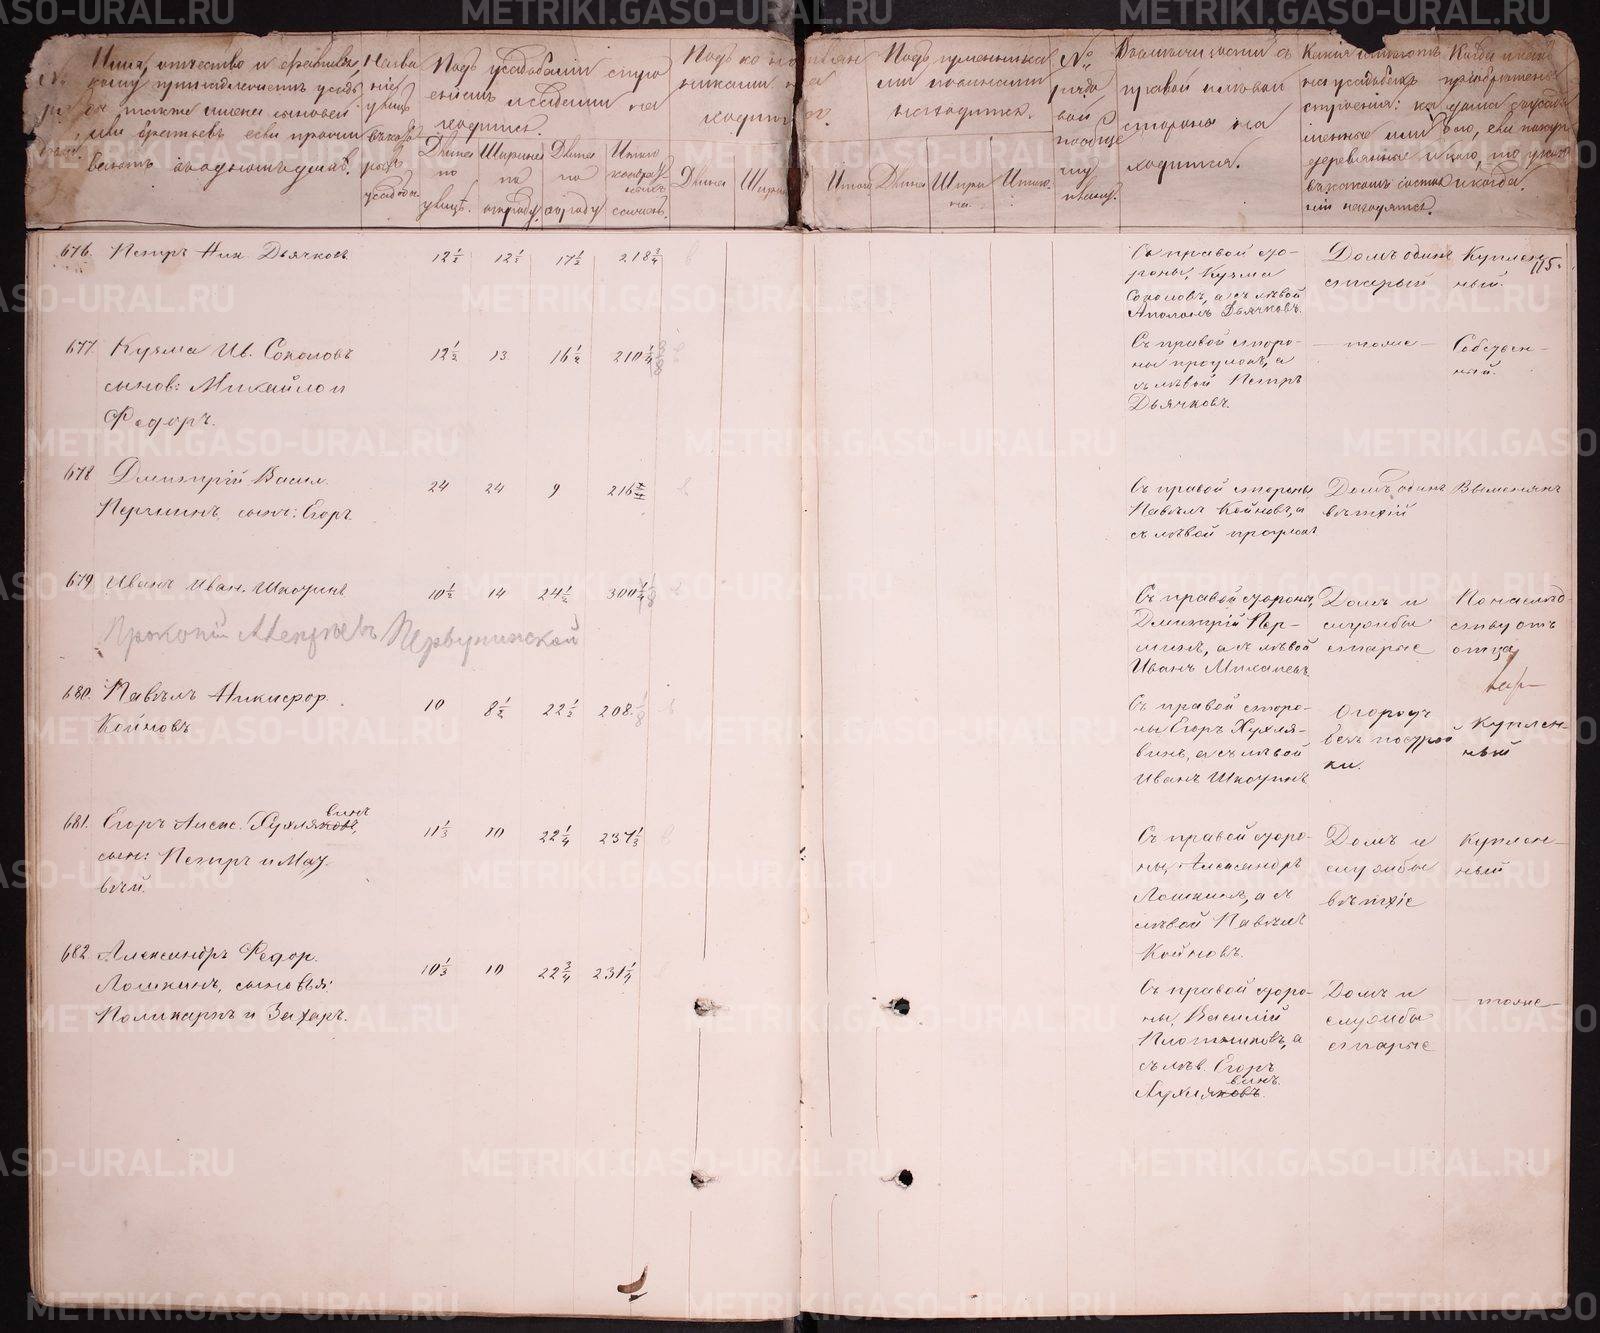 Имя, отчество и фамилия,
кому принадлежитъ усадь
ба также имена сыновей
или братьевъ если прожи
ваютъ въ одномъ домѣ.
Назва
ніе
улицъ
въ кото
рыхъ
усадьбы.
Подъ усадебнымъ стро
еніемъ и садами на
ходится.
Длина
по
улицѣ.
Ширина
по
огороду.
Длина
по
огороду
Итого
квадрат
ныхъ
сажень.
Подъ коноплян
никами на
ходится.
Длина
Ширина
Итого
Подъ гуменника
ми
находится.
Длина
Шири
на.
Итого.
№
рядо
вой
по
улицамъ.
правой и лѣвой
стороны на
ходится.
Какія имѣютъ
на усадьбахъ
строенія: ка
менныя или
деревянныя и
въ какомъ состоя
ніи находятся.
Когда и кѣмъ
пріобрѣтены
и когда.
115.
676. Петръ Ник. Дьячковъ
12½ 12½ 17½ 218¾
Съ правой сто-
роны, Кузма
Соколовъ, а съ лѣвой
Аполонъ Дьячковъ.
Домъ одинъ
старый
Куплен
ный.
677. Кузма Ив. Соколовъ
сынов: Михайло и
Федоръ.
12½ 13 16½ 210¼
Съ правой сторо-
ны проулокъ, а
съ лѣвой Петръ
Дьячковъ.
— тоже —
Собствен-
ный.
678 Дмитрій Васил.
Перминъ, сынъ: Егоръ
24 24 9 216
Съ правой стороны
Павелъ Койновъ, а
съ лѣвой проулокъ
Домъ одинъ
вѣтхій
Вымененъ
679. Иванъ Иван. Шкотинъ
10½ 14 24½ 300¼
Съ правой стороны,
Дмитрій Пер-
минъ, а съ лѣвой
Иванъ Михалевъ
Домъ и
службы
старые
По наслѣд-
ству отъ
отца
Прокопій
680. Павелъ Никифор.
Койновъ
10 8½ 22½ 208.⅛
Съ правой сторо-
ны Егоръ Хухля-
винъ, а съ лѣвой
Иванъ Шкотинъ
Огородъ
безъ построй
ки.
Куплен-
ный
681. Егоръ Алекс. Хухляковъ,
винъ
сын: Петръ и Мат
вѣй.
11⅓ 10 22¼ 237⅓
Съ правой сторо-
ны, Александръ
Лошкинъ, а съ
лѣвой Павелъ
Койновъ.
Домъ и
службы
вѣтхіе
Куплен-
ный
682. Александръ Федор.
Лошкинъ, сыновья:
Поликарпъ и Захаръ.
10⅓ 10 22¾ 231¼
Съ правой сторо-
ны, Василій
Плотниковъ, а
съ лѣв. Егоръ
винъ.
Хухляковъ.
Домъ и
службы
старые
— тоже —
METRIKI.GASO-URAL.RU